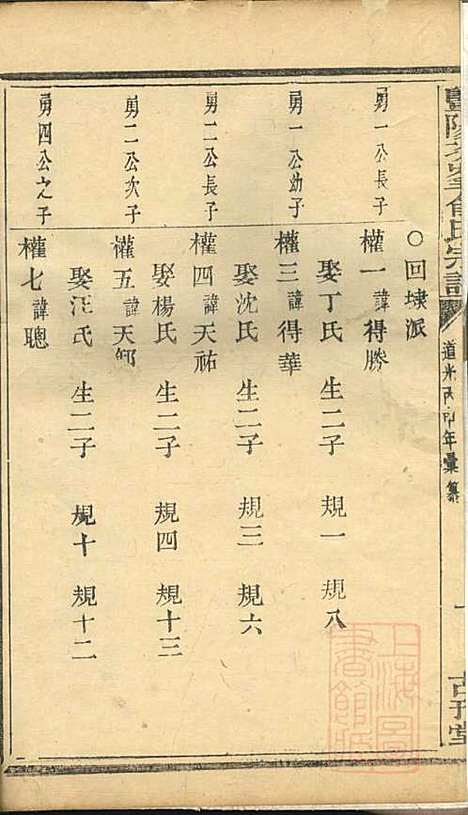 ○回埭派
勇一公長子
權一諱得勝
娶丁氏 生二子 規一 規八
勇一公幼子
權三諱得華
娶沈氏 生二子 規三 規六
勇二公長子
權四諱天祐
娶楊氏 生二子 規四 規十三
勇二公次子
權五諱天
娶汪氏 生二子 規十 規十二
勇四公之子
權七諱聰
暨陽 俞氏宗譜
道光 年彙纂
一
古 堂
上海圖書館藏